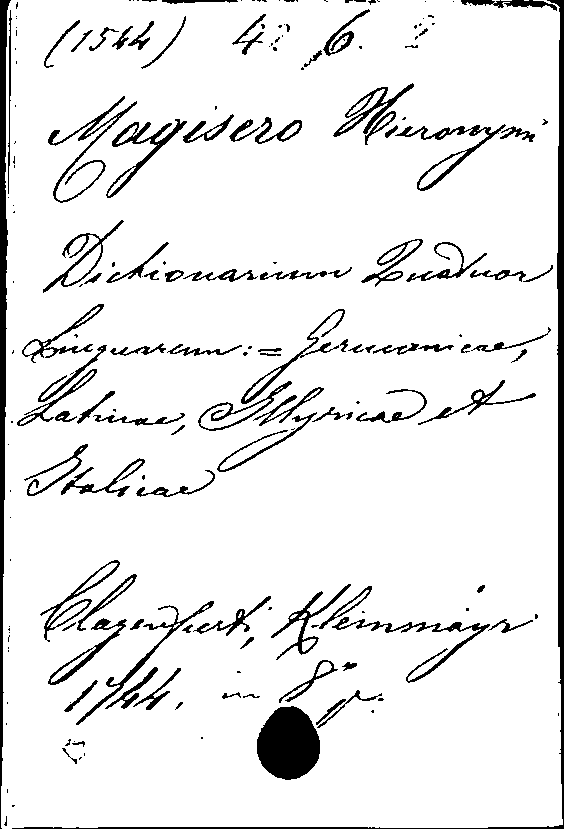 (1544) 42 6.
Magisero Hieronymi
Dictionarium Quatuor
Linguarum := Germanicae,
Latinae, Illyricae et
Italicae
Clagenfurti, Kleinmayr
1744. in 8º